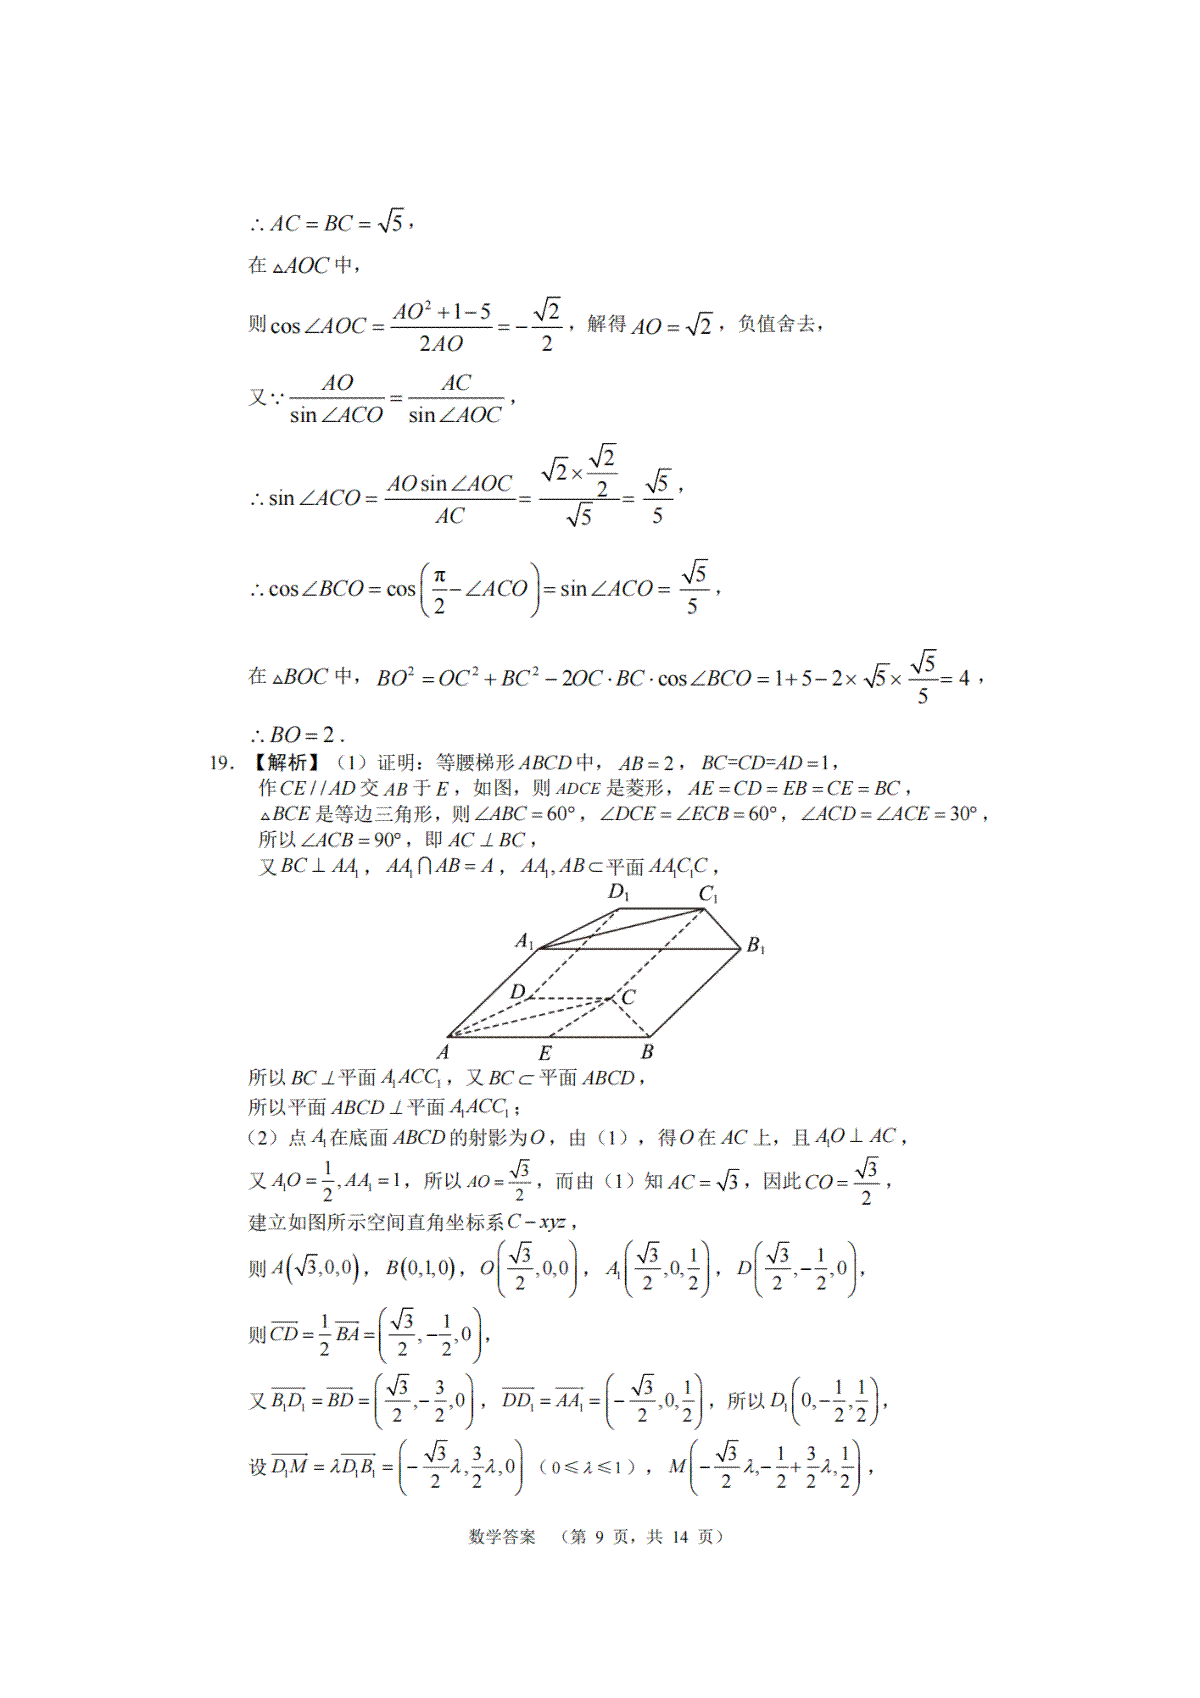 ∴AC=BC=√5，
在△AOC中，
则cos∠AOC=(AO²+1−5)/(2AO)=−√2/2，解得AO=√2，负值舍去，
又∵AO/sin∠ACO=AC/sin∠AOC，
∴sin∠ACO=AOsin∠AOC/AC=(√2×√2/2)/√5=√5/5，
∴cos∠BCO=cos(π/2−∠ACO)=sin∠ACO=√5/5，
在△BOC中，BO²=OC²+BC²−2OC·BC·cos∠BCO=1+5−2×√5×√5/5=4，
∴BO=2.
19.【解析】（1）证明：等腰梯形ABCD中，AB=2，BC=CD=AD=1，
作CE//AD交AB于E，如图，则ADCE是菱形，AE=CD=EB=CE=BC，
△BCE是等边三角形，则∠ABC=60°，∠DCE=∠ECB=60°，∠ACD=∠ACE=30°，
所以∠ACB=90°，即AC⊥BC，
又BC⊥AA₁，AA₁∩AB=A，AA₁,AB⊂平面AA₁C₁C，
D₁ C₁
A₁ B₁
D C
A E B
所以BC⊥平面A₁ACC₁，又BC⊂平面ABCD，
所以平面ABCD⊥平面A₁ACC₁；
（2）点A₁在底面ABCD的射影为O，由（1），得O在AC上，且A₁O⊥AC，
又A₁O=1/2,AA₁=1，所以AO=√3/2，而由（1）知AC=√3，因此CO=√3/2，
建立如图所示空间直角坐标系C−xyz，
则A(√3,0,0)，B(0,1,0)，O(√3/2,0,0)，A₁(√3/2,0,1/2)，D(√3/2,−1/2,0)，
则CD=1/2BA=(√3/2,−1/2,0)，
又B₁D₁=BD=(√3/2,−3/2,0)，DD₁=AA₁=(−√3/2,0,1/2)，所以D₁(0,−1/2,1/2)，
设D₁M=λD₁B₁=(−√3/2λ,3/2λ,0)（0≤λ≤1），M(−√3/2λ,−1/2+3/2λ,1/2)，
数学答案 （第 9 页，共 14 页）